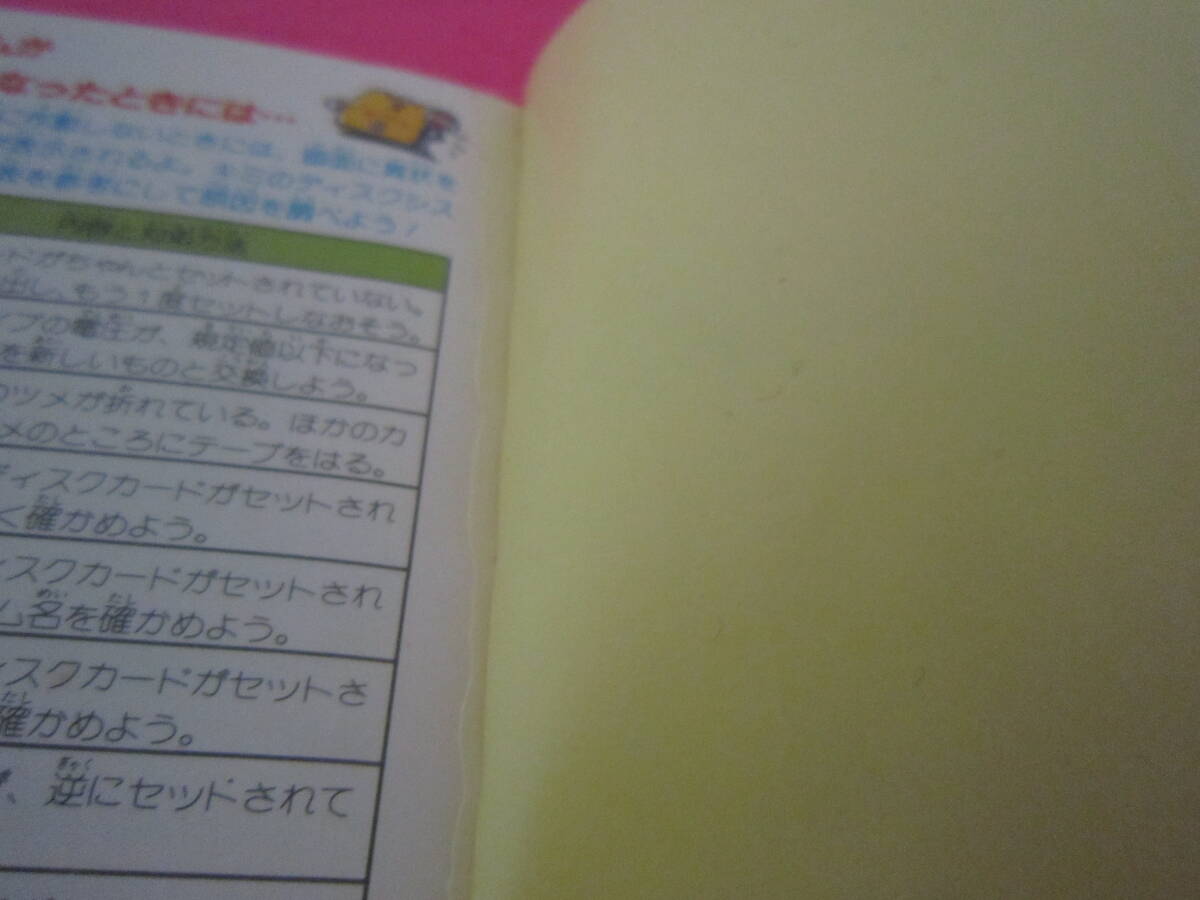 なったときには…
に作動しないときには、画面に異状を
が表示されるよ。キミのディスクシス
表を参考にして原因を調べよう！
内容と対処方法
ドがちゃんとセットされていない。
出し、もう1度セットしなおそう。
プの電圧が、規定値以下になっ
を新しいものと交換しよう。
のツメが折れている。ほかのカ
メのところにテープをはる。
ディスクカードがセットされ
く確かめよう。
ィスクカードがセットされ
ム名を確かめよう。
ィスクカードがセットさ
確かめよう。
、逆にセットされて